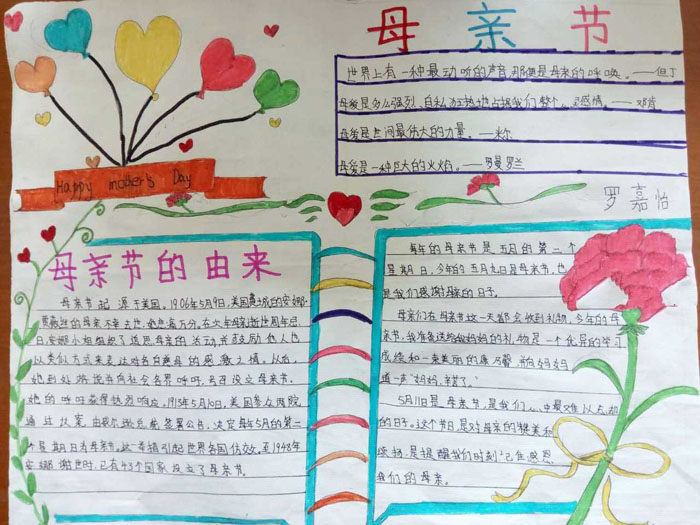 母亲节
世界上有一种最动听的声音,那便是母亲的呼唤。——但丁
母爱是多么强烈、自私、狂热地占据我们整个心灵感情。——邓肯
母爱是世间最伟大的力量。——米尔
母爱是一种巨大的火焰。——罗曼罗兰
Happy mother's Day
罗嘉怡
母亲节的由来
母亲节起源于美国。1906年5月9日,美国费城的安娜·
的母亲不幸去世,她悲痛万分。在次年母亲逝世周年忌
日,安娜小姐组织了追思母亲的活动,并鼓励他人也
以类似方式来表达对各自慈母的感激之情。从后,
她到处游说并向社会各界呼吁,号召设立母亲节。
她的呼吁获得热烈响应。1913年5月10日,美国参众两院
通过议案,由威尔逊总统签署公布,决定每年5月的第二
个星期日为母亲节。这一举措引起世界各国仿效,至1948年
安娜谢世时,已有43个国家设立了母亲节。
每年的母亲节是五月的第二个
星期日,今年的五月九日是母亲节,也
是我们感谢母亲的日子。
母亲们在母亲节这一天都会收到礼物,今年的母
亲节,我准备送给妈妈的礼物是一个优异的学习
成绩和一束美丽的康乃馨,并向妈妈
道一声“妈妈,辛苦了。”
5月11日是母亲节,是我们心中最难以忘却
的日子。这个节日,是对母亲的赞美和
颂扬,是提醒我们时刻记住感恩
我们的母亲。